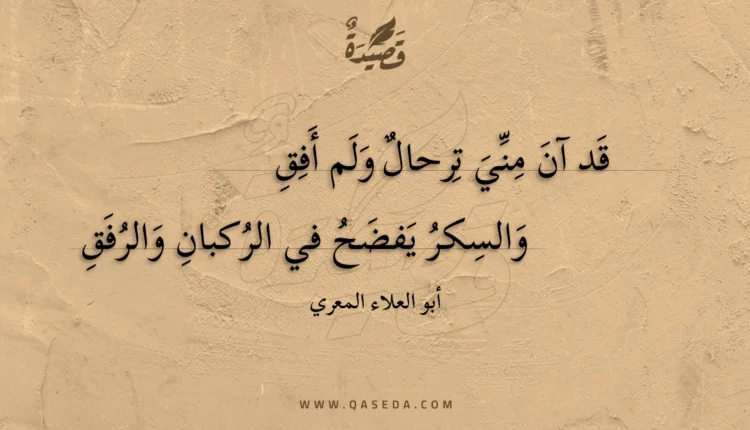 قَصيدَةٌ
قَد آنَ مِنِّيَ تِرحالٌ وَلَم أَفِقِ
وَالسِكرُ يَفضَحُ في الرُكبانِ وَالرُفَقِ
أبو العلاء المعري
WWW.QASEDA.COM